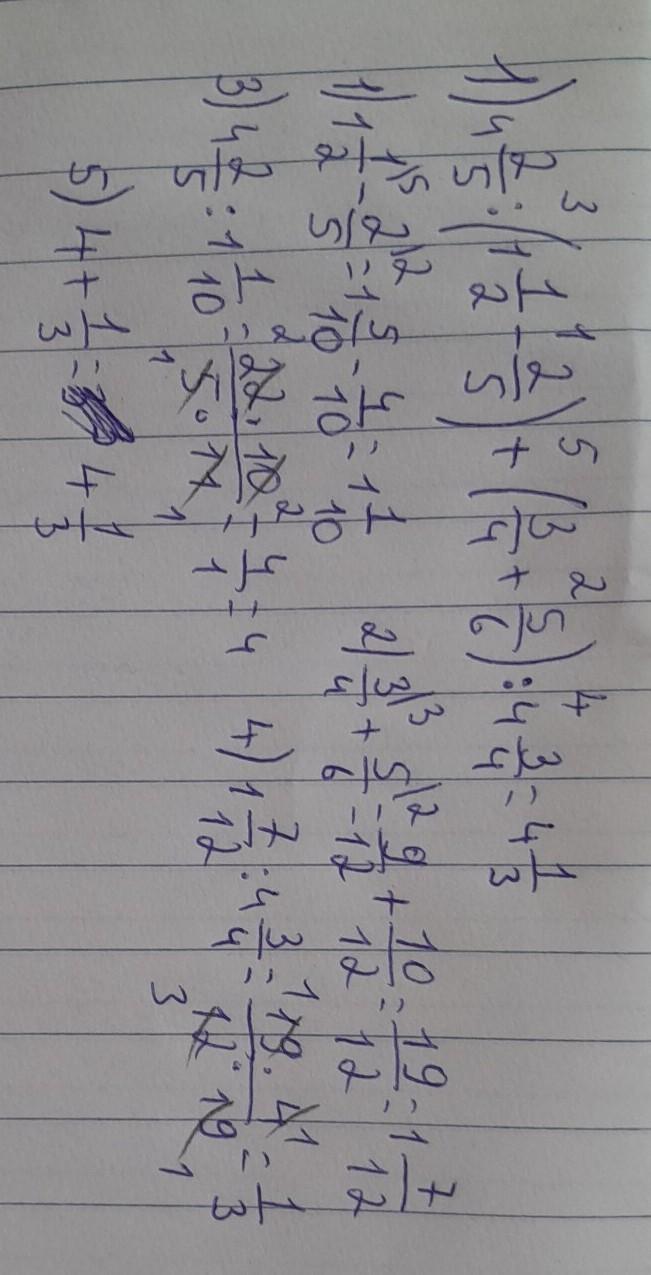 1) 4 2/5 : (1 1/2 - 2/5) + (3/4 + 5/6) : 4 3/4 = 4 1/3
3 1 5 2 4
1) 1 1/2\5 - 2/5\2 = 1 5/10 - 4/10 = 1 1/10
2) 3/4\3 + 5/6\2 = 9/12 + 10/12 = 19/12 = 1 7/12
3) 4 2/5 : 1 1/10 = 22 · 10 / 5 · 11 = 4/1 = 4
4) 1 7/12 : 4 3/4 = 19 · 4 / 12 · 19 = 1/3
5) 4 + 1/3 = 4 1/3